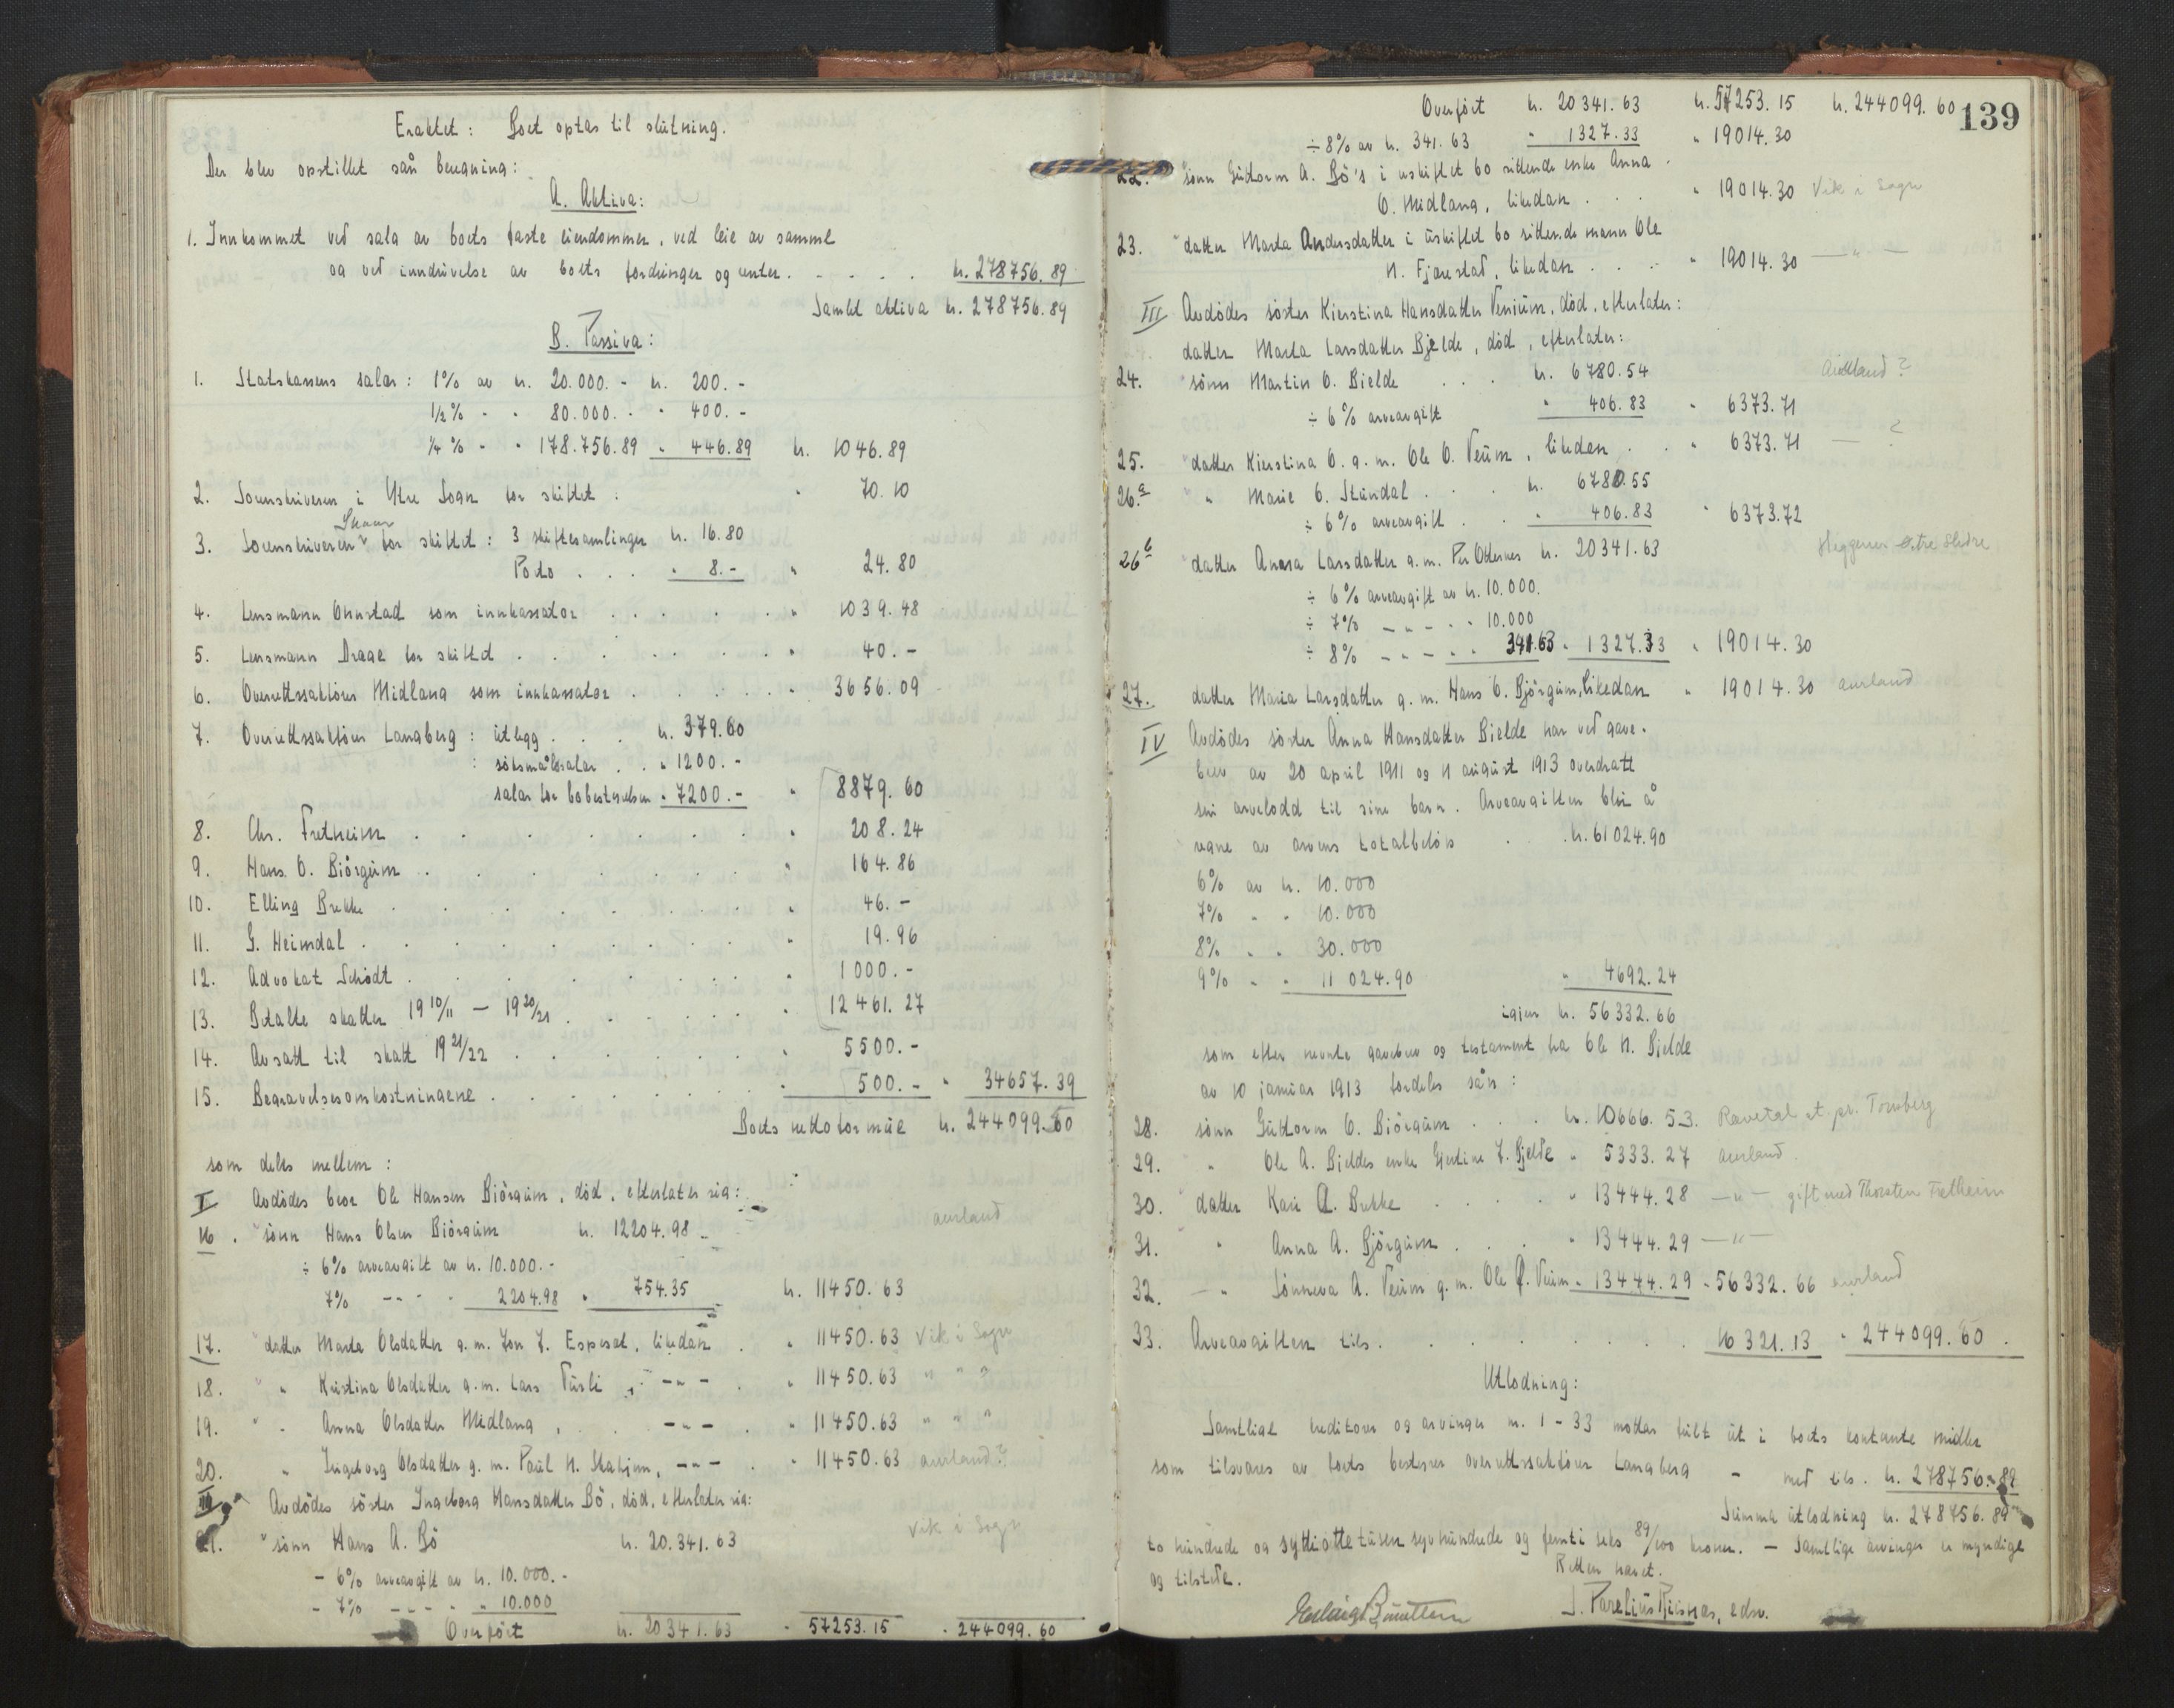 Eraktet: Boet optas til slutning.
Der blev opstillet sån beregning:
A. Aktiva:
1. Innkommet ved salg av boets faste eiendommer, ved leie av samme
og ved inndrivelse av boets fordringer og renter. . . . . kr. 278756.89
Samlet aktiva kr. 278756.89
B. Passiva:
1. Statskassens salær: 1% av kr. 20.000.- kr. 200.-
1/2% - - 80.000. - - 400.-
1/4 % - - 178.756.89 - 446.89 kr. 1046.89
2. Sorenskriveren i Ytre Sogn for skiftet: " 70.10
3. Sorenskriveren for skiftet: 3 skiftesamlinger kr. 16.80
Porto . . . " 8.- " 24.80
4. Lensmann Onnstad som innkassator . . . . . . " 1039.48
5. Lensmann Drage for skiftet . . . . . . . " 40.-
6. Overrettssakfører Midlang som innkassator . . . . . " 3656.09
7. Overrettssakfører Langberg: utlegg . . . kr. 379.60
: søksmålssalær . . " 1200.-
salær for bobestyrelsen " 7200.- " 8879.60
8. Chr. Fretheim . . . . . . . . " 208.24
9. Hans O. Biörgum . . . . . . . " 164.86
10. Elling Brekke . . . . . . . . " 46.-
11. G. Heimdal . . . . . . . . . " 19.96
12. Advokat Schödt . . . . . . . " 1000.-
13. Betalte skatter 19 10/11 — 19 20/21 . . . . . " 12461.27
14. Avsatt til skatt 19 21/22 . . . . . . . " 5500.-
15. Begravelsesomkostningene . . . . . . " 500.- " 34657.39
Boets nettoformue kr. 244099.50
som deles mellem:
I Avdödes bror Ole Hansen Biörgum, död, efterlater sig:
16. sönn Hans Olsen Biörgum kr. 12204.98 aurland
÷ 6% arveavgift av kr. 10.000.-
7% - - - - 2204.98 " 754.35 kr. 11450.63
17. " datter Marta Olsdatter g.m. Jon J. Espeset, likedan . " 11450.63 Vik i Sogn
18. " " Kristina Olsdatter g.m. Lars Turli , - - - . " 11450.63 " " ?
19. " " Anna Olsdatter Midlang , . . - - - . " 11450.63 " " "
20. " Ingeborg Olsdatter g.m. Paul H. Skahjem, - - - . " 11450.63 aurland?
II Avdödes söster Ingeborg Hansdatter Bö, död, efterlater sig:
21. " sönn Hans A. Bö kr. 20.341.63 Vik i Sogn
- 6% arveavgift av kr. 10.000.-
- 7% - - - - 10.000
Overfört kr. 20341.63 " 57253.15 " 244099.60
139
Overfört kr. 20341.63 kr. 57253.15 kr. 244099.60
÷ 8% av kr. 341.63 " 1327.33 " 19014.30
22. " sönn Guttorm A. Bö's i uskiftet bo sittende enke Anna
O. Midlang, likedan . . . " 19014.30 Vik i Sogn
23. " datter Marta Andersdatter i uskiftet bo sittende mann Ole
H. Fjærestad, likedan . . . " 19014.30 — " —
III Avdödes söster Kierstina Hansdatter Venjum, död, efterlater:
datter Marta Larsdatter Bjelde, död, efterlater:
24. " sönn Martin O. Bielde . . . kr. 6780.54 Aurland?
÷ 6% arveavgift " 406.83 " 6373.71
25. " datter Kierstina O. g.m. Ole O. Veum, likedan . . " 6373.71 — ?
26.a " " Marie O. Stundal . . . kr. 6780.55
÷ 6% arveavgift . . " 406.83 " 6373.72
26b " datter Anna Larsdatter g.m. Per Otternes kr. 20341.63 Heggenes Østre Slidre
÷ 6% arveavgift av kr. 10.000.
÷ 7% - - - - 10.000
÷ 8% - - - - 341.63 " 1327.33 " 19014.30
27. datter Maria Larsdatter g.m. Hans O. Björgum, likedan " 19014.30 aurland
IV Avdödes söster Anna Hansdatter Bielde har ved gave-
brev av 20 april 1911 og 11 august 1913 overdratt
sin arvelodd til sine barn. Arveavgiften blir å
regne av arvens totalbelöp . . kr. 61024.90
6% av kr. 10.000
7% - - 10.000
8% - - 30.000
9% - - 11 024.90 " 4692.24
igjen kr. 56332.66
som efter nevnte gavebrev og testament fra Ole H. Bjelde
av 10 januar 1913 fordeles sån:
28. sönn Guttorm O. Biörgum . . . kr. 10666.53. Ravetal st. pr. Tönsberg
29. " Ole A. Bieldes enke Gjertine J. Bjelde " 5333.27 aurland.
30. " datter Kari A. Brekke . . . . " 13444.28 — " — gift med Thorsten Fretheim
31. " " Anna A. Björgum . . . " 13444.29 — " —
32. — " Sönneva A. Veum g.m. Ole O. Veum " 13444.29 " 56332.66 aurland
33. Arveavgiften tils. . . . . . . . 16321.13 " 244099.50.
Utlodning:
Samtlige kreditorer og arvinger nr. 1 - 33 mottar fullt ut i boets kontante midler
som tilsvares av boets bestyrer overrettssakfører Langberg - med tils. kr. 278756.89
Summa utlodning kr. 278756.89
to hundrede og syttiotte tusen syvhundrede og femti seks 89/100 kroner. — Samtlige arvinger er myndige
og tilstede.
Retten hevet.